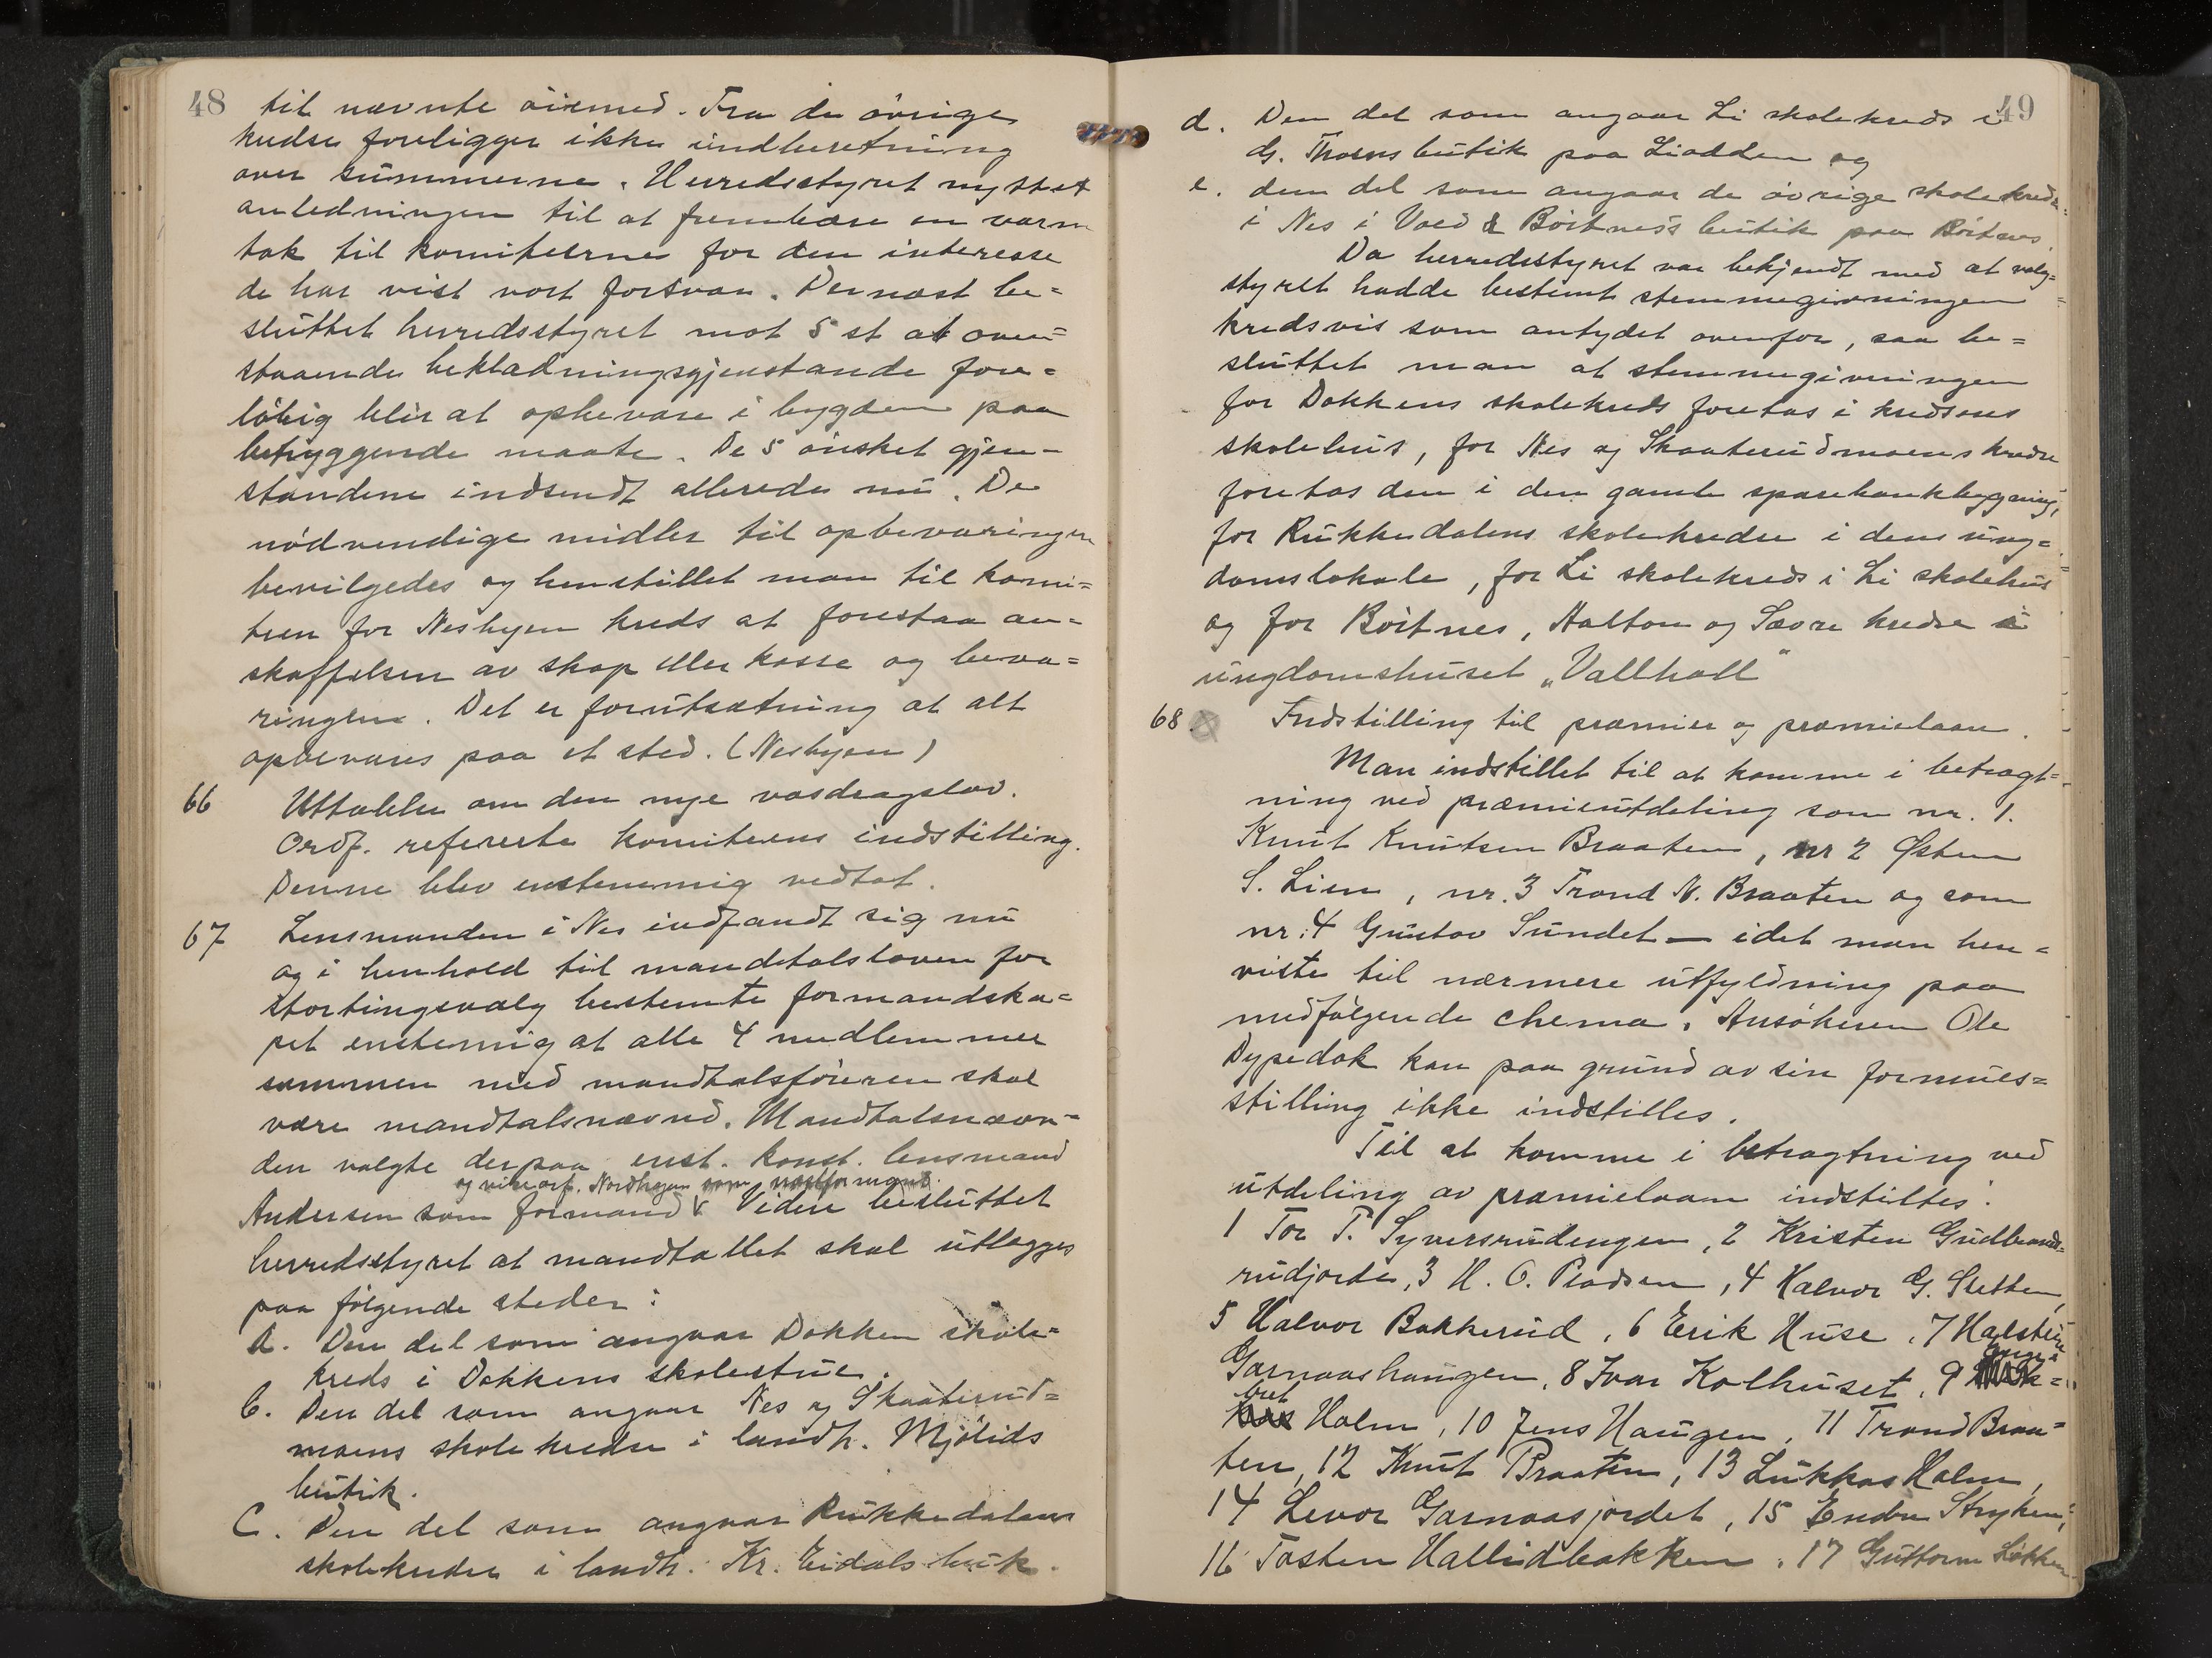 48
til nævnte øiemed. Fra de øvrige
kredse foreligger ikke indberetning
over summerne. Herredsstyret nyttet
anledningen til at frembære en varm
tak til komiteerne for den interesse
de har vist vort forsvar. Dernæst be=
sluttet herredsstyret mot 5 st at oven=
staaende beklædningsgjenstande fore=
løbig blir at opbevare i bygden paa
betryggende maate. De 5 ønsket gjen=
standene indsendt allerede nu. De
nødvendige midler til opbevaringen
bevilgedes og henstillet man til komi=
teen for Nesbyen kreds at forestaa an=
skaffelsen av skap eller kasse og beva=
ringen. Det er forutsætning at alt
opbevares paa et sted. (Nesbyen)
66 Uttalelse om den nye vasdragslov.
Ordf. refererte komiteens indstilling.
Denne blev enstemmig vedtat.
67 Lensmanden i Nes indfandt sig nu
og i henhold til mandtalsloven for
stortingsvalg bestemte formandska=
pet enstemig at alle 4 medlemmer
sammen med mandtalsføreren skal
være mandtalsnævnd. Mandtalsnævn=
den valgte derpaa enst. konst. lensmand
og viceord. Nordhagen som næstformand.
Andersen som formand V Videre besluttet
herredsstyret at mandtallet skal utlægges
paa følgende steder:
A. Den del som angaar Dokken skole=
kreds i Dokkens skolestue.
b. Den del som angaar Nes og Skaaterud=
moens skolekredse i landh. Mjølids
butik.
C. Den del som angaar Rukkedalens
skolekredse i landh. Kr. Eidals butik.
49
d. Den del som angaar Li skolekreds i
G. Thoens butik paa Liodden og
e. den del som angaar de øvrige skolekredse
i Nes i Vold & Bøitnes's butik paa Bøitnes.
Da herredsstyret var bekjendt med at valg=
styret hadde bestemt stemmegivningen
kredsvis som antydet ovenfor, saa be=
sluttet man at stemmegivningen
for Dokkens skolekreds foretas i kredsens
skolehus, for Nes og Skaaterudmoens kredse
foretas den i den gamle sparebankbygning,
for Rukkedalens skolekredse i dens ung=
domslokale, for Li skolekreds i Li skolehus
og for Bøitnes, Halton og Sævre kredse i
ungdomshuset „Vallhall"
68. Indstilling til præmier og præmielaan.
Man indstillet til at komme i betragt=
ning ved præmieutdeling som nr. 1.
Knut Knutsen Braaten, nr 2 Østen
S. Lien, nr. 3 Trond N. Braaten og som
nr. 4 Gustav Sundet — idet man hen=
viste til nærmere utfyldning paa
medfølgende chema. Ansøkeren Ole
Dypedok kan paa grund av sin formues=
stilling ikke indstilles.
Til at komme i betragtning ved
utdeling av præmielaan indstilles:
1 Tor T. Syversrudengen, 2 Kristen Gudbrands=
rudjorde, 3 H. O. Pladsen, 4 Halvor G. Sletten,
5 Halvor Bakkerud, 6 Erik Huse, 7 Halstein
Garnaashaugen, 8 Ivar Kolhuset, 9
Holm, 10 Jens Haugen, 11 Trond Braa=
ten, 12 Knut Braaten, 13 Lukkas Holm,
14 Levor Garnaasjordet, 15 Endre Stryken,
16 Tosten Hallidbakken, 17 Guttorm Løkken